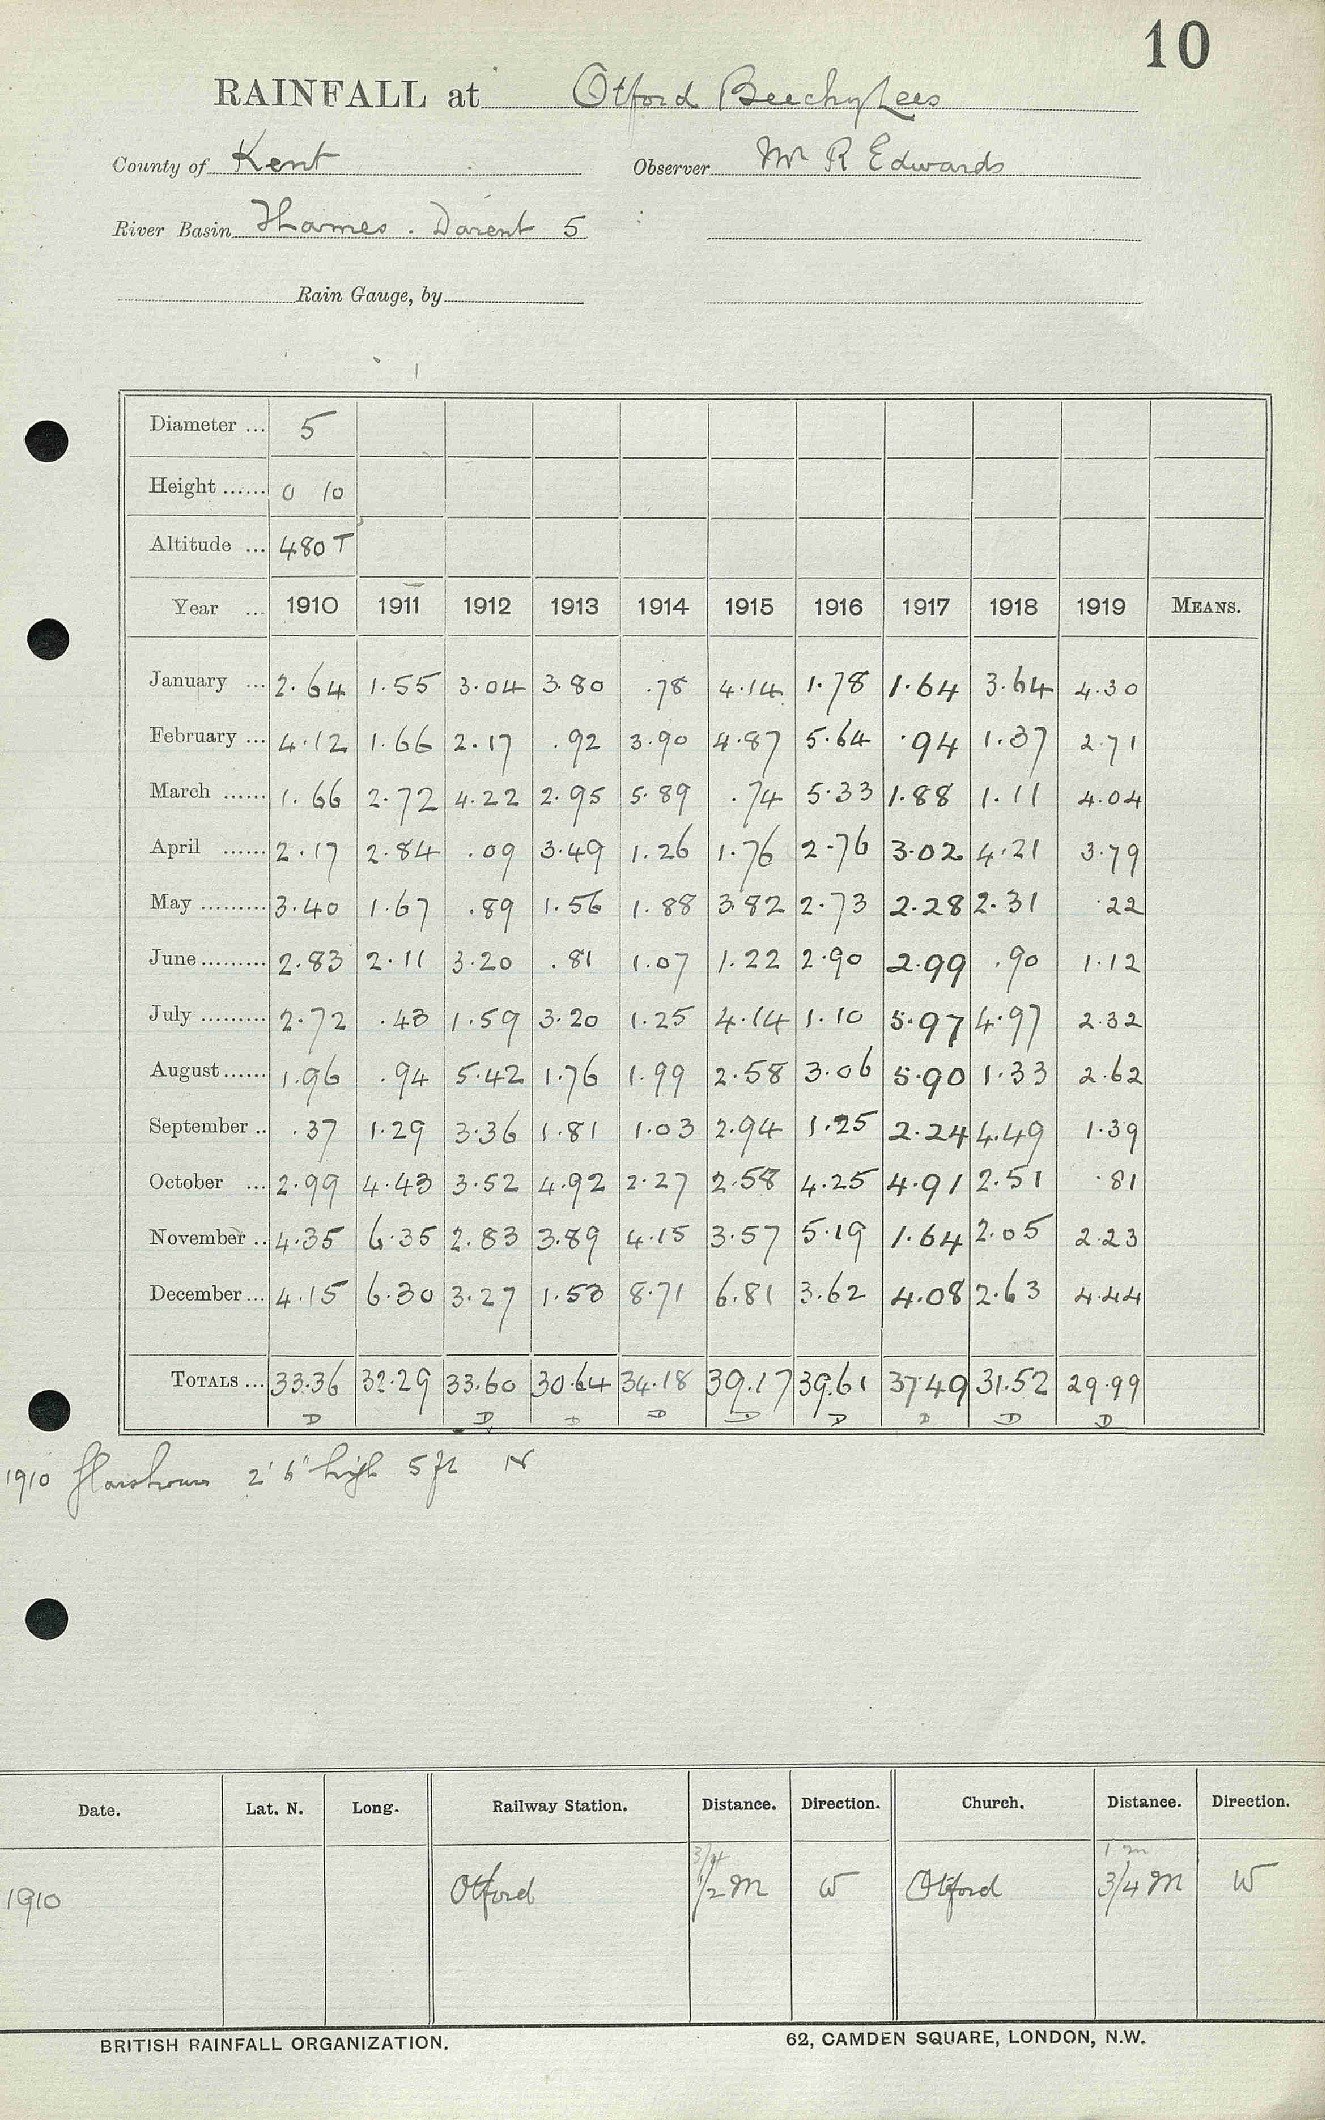 10
RAINFALL at Otford Beechy Lees
County of Kent Observer Mr R Edwards
River Basin Thames . Darent 5
Rain Gauge, by
Diameter ... 5
Height ...... 0 10
Altitude ... 480 T
Year ... 1910 1911 1912 1913 1914 1915 1916 1917 1918 1919 MEANS.
January ... 2.64 1.55 3.04 3.80 .78 4.14 1.78 1.64 3.64 4.30
February ... 4.12 1.66 2.17 .92 3.90 4.87 5.64 .94 1.37 2.71
March ...... 1.66 2.72 4.22 2.95 5.89 .74 5.33 1.88 1.11 4.04
April ...... 2.17 2.84 .09 3.49 1.26 1.76 2.76 3.02 4.21 3.79
May ......... 3.40 1.67 .89 1.56 1.88 3.82 2.73 2.28 2.31 .22
June ......... 2.83 2.11 3.20 .81 1.07 1.22 2.90 2.99 .90 1.12
July ......... 2.72 .43 1.59 3.20 1.25 4.14 1.10 5.97 4.97 2.32
August ...... 1.96 .94 5.42 1.76 1.99 2.58 3.06 5.90 1.33 2.62
September .. .37 1.29 3.36 1.81 1.03 2.94 1.25 2.24 4.49 1.39
October ... 2.99 4.43 3.52 4.92 2.27 2.58 4.25 4.91 2.51 .81
November .. 4.35 6.35 2.83 3.89 4.15 3.57 5.19 1.64 2.05 2.23
December ... 4.15 6.30 3.27 1.53 8.71 6.81 3.62 4.08 2.63 4.44
TOTALS ... 33.36 32.29 33.60 30.64 34.18 39.17 39.61 37.49 31.52 29.99
D D D D D D D D D
1910 Glasshouse 2' 6" high 5 ft N
Date. Lat. N. Long. Railway Station. Distance. Direction. Church. Distance. Direction.
3/4 1 m
1910 Otford 1/2 M W Otford 3/4 M W
BRITISH RAINFALL ORGANIZATION. 62, CAMDEN SQUARE, LONDON, N.W.